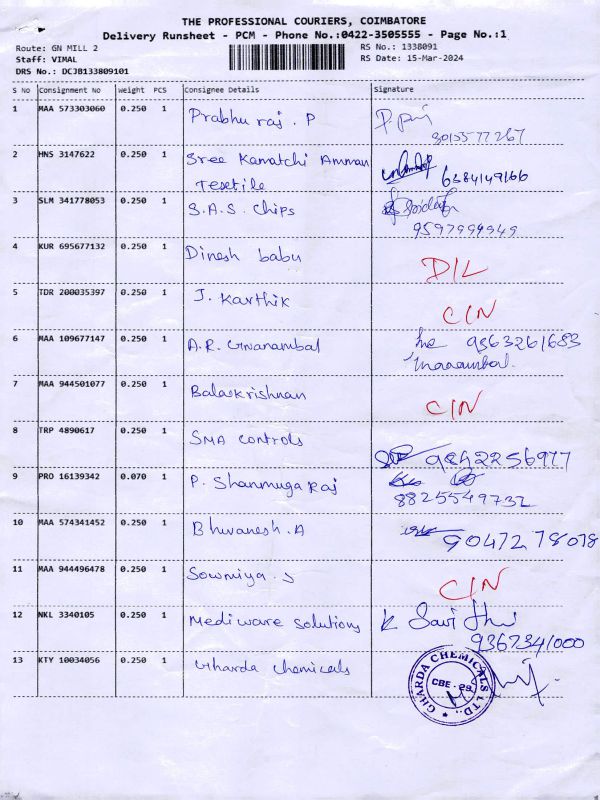 THE PROFESSIONAL COURIERS, COIMBATORE
Delivery Runsheet - PCM - Phone No.:0422-3505555 - Page No.:1
Route: GN MILL 2 RS No.: 1338091
Staff: VIMAL RS Date: 15-Mar-2024
DRS No.: DCJB133809101
S No Consignment No Weight PCS Consignee Details Signature
1 MAA 573303060 0.250 1 Prabhu raj . P
2 HNS 3147622 0.250 1 Sree Kamatchi Amman 6384149166
Texetile
3 SLM 341778053 0.250 1 S.A.S. Chips
9597999949
4 KUR 695677132 0.250 1 Dinesh babu D/L
5 TDR 200035397 0.250 1 J. Karthik C/N
6 MAA 109677147 0.250 1 A.R. Gnanambal 9363261683
7 MAA 944501077 0.250 1 Balakrishnan C/N
8 TRP 4890617 0.250 1 SMA Controls 9842256977
9 PRO 16139342 0.070 1 P. Shanmuga Raj
8825549732
10 MAA 574341452 0.250 1 Bhuvanesh . A 9047278078
11 MAA 944496478 0.250 1 Sowmiya . S C/N
12 NKL 3340105 0.250 1 Mediware solutions K Savithri
9367341000
13 KTY 10034056 0.250 1 Gharda Chemicals
GHARDA CHEMICALS LTD.,
CBE - 29